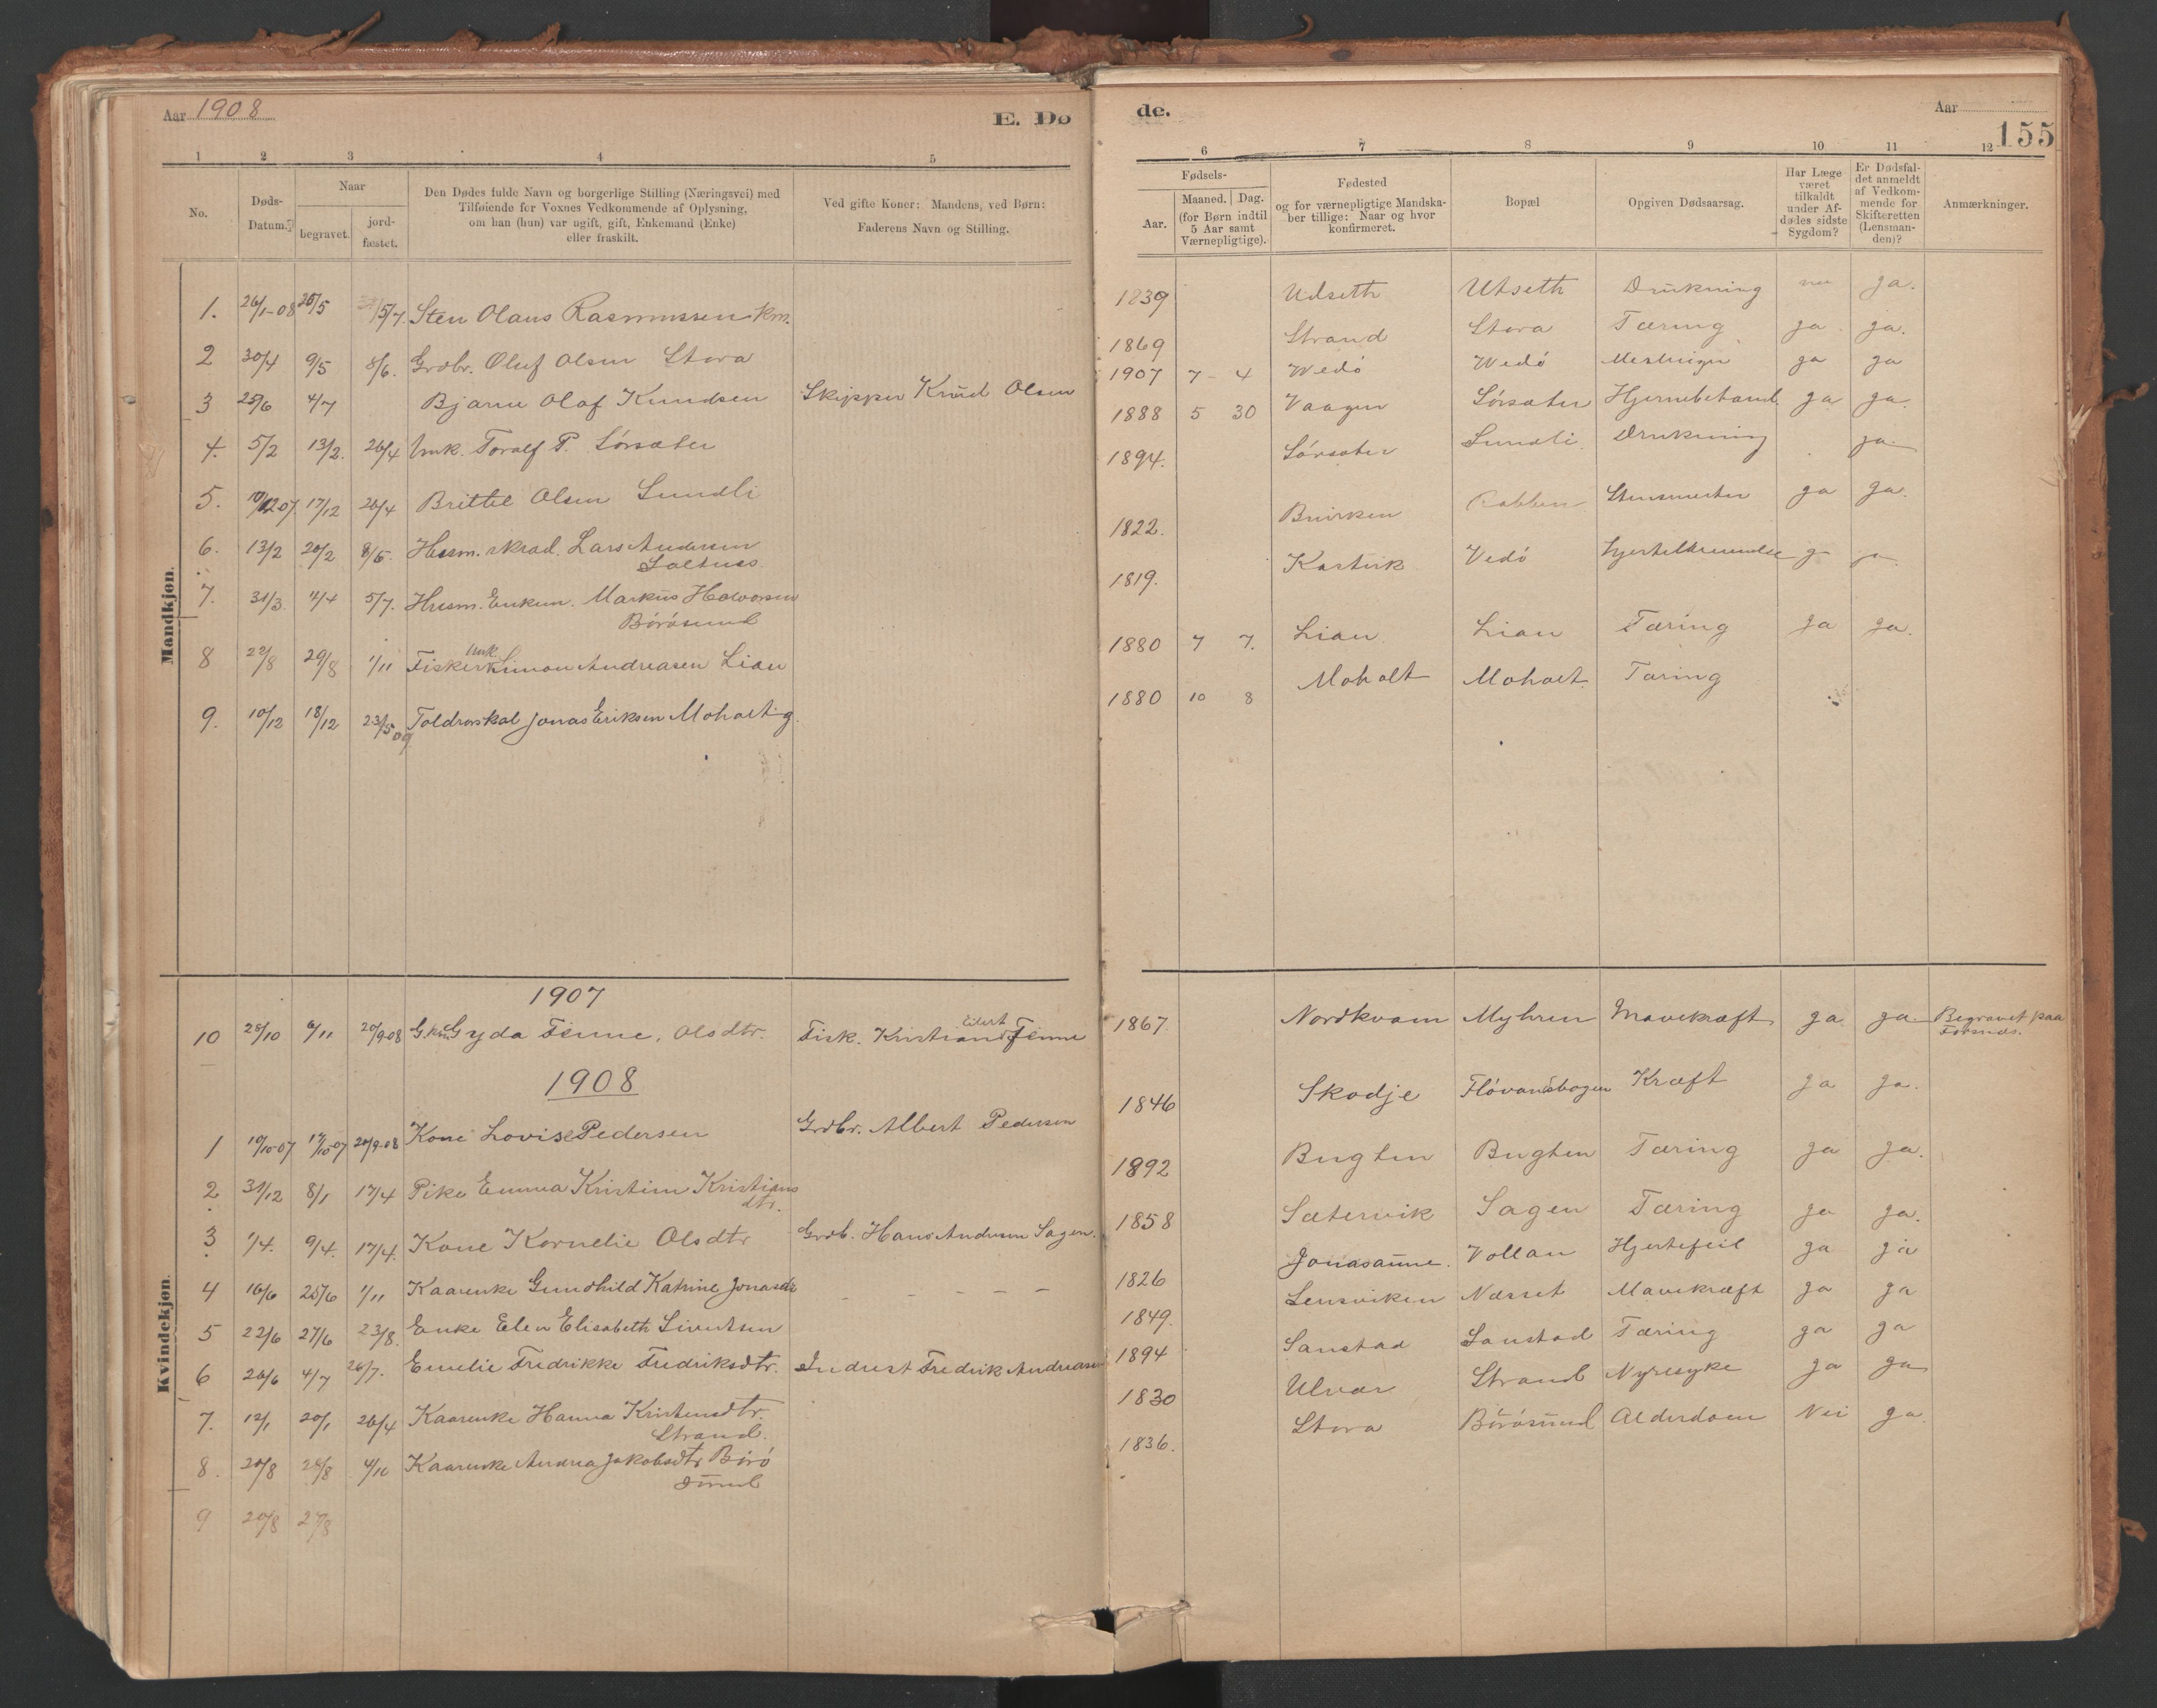 Aar 1908
E. Dø
de.
Aar
155
1 2 3 4 5
6 7 8 9 10 11 12
No.
Døds-
Datum.
Naar
begravet.
jord-
fæstet.
Den Dødes fulde Navn og borgerlige Stilling (Næringsvei) med
Tilføiende for Voxnes Vedkommende af Oplysning,
om han (hun) var ugift, gift, Enkemand (Enke)
eller fraskilt.
Ved gifte Koner: Mandens, ved Børn:
Faderens Navn og Stilling.
Fødsels-
Aar.
Maaned. Dag.
(for Børn indtil
5 Aar samt
Værnepligtige).
Fødested
og for værnepligtige Mandska-
ber tillige: Naar og hvor
konfirmeret.
Bopæl
Opgiven Dødsaarsag.
Har Læge
været
tilkaldt
under Af-
dødes sidste
Sygdom?
Er Dødsfal-
det anmeldt
af Vedkom-
mende for
Skifteretten
(Lensman-
den)?
Anmærkninger.
Mandkjøn.
1. 26/1-08 Sten Olaus Rasmussen 1839 Udseth Utseth Drukning ja.
2 30/4 9/5 8/6. Grdbr. Oluf Olsen Stora 1869 Strand Stora Tæring ja ja.
3 25/6 4/7 Bjarne Olaf Knudsen Skipper Knud Olsen 1907 7 - 4 Vedö Vedö ja ja
4. 5/2 13/2. 26/4 Unk. Toralf P. Sörsæter 1888 5 30 Vaagen Sörsæter ja ja.
5. 10/12 07 17/12 26/4 Brittel Olsen Sundli 1894. Sörsæter Sundli Drukning ja.
6. 13/2 20/2 8/5. Lars Andersen
Saltnes 1822. ja ja.
7. 31/3 4/4 5/7. Husm. Enkem. Markus Halvorsen
Börösund 1819. Vedö
8 22/8 29/8 1/11 Fisker Unk. Simon Andreasen Lian 1880 7 7. Lian Lian Tæring ja ja.
9. 10/12 18/12 23/5 09 Jonas Eriksen Moholt g. 1880 10 8 Moholt Moholt Tæring
Kvindekjøn.
1907
10 28/10 6/11 20/9-08 Gyda Finne, Olsdtr. Fisk. Kristian Eilert Finne 1867 Nordkvam Myhren Mavekræft ja ja. Begravet paa
1908
1 10/10-07 17/10-07 20/9-08 Kone Lovise Pedersen Grdbr. Albert Pedersen 1846 Skodje Kræft ja ja.
2. 31/12 8/1 17/4 Pike Emma Kristine Kristians
dtr. 1892 Bugten Bugten Tæring ja ja.
3. 1/4. 9/4. 17/4. Kone Kornelie Olsdtr Grdb. Hans Andersen Sagen. 1858 Sætervik Sagen Tæring ja ja.
4 16/6 25/6 1/11 Kaarenke Gundhild Katrine Jonasdr - - - - - 1826 Jonasaune. Vollan Hjertefeil ja ja
5 22/6 27/6 23/8. Enke Elen Elisabeth Sivertsen 1849. Lensviken Næsset Mavekræft ja ja
6 26/6 4/7 26/7. Emelie Fredrikke Fredriksdtr. Indrest Fredrik Andreasen 1894 Sanstad Sanstad Tæring ja ja
7. 12/1 20/1 26/4 Kaarenke Hanna Kristensdtr.
Strand. 1830 Ulvær Strand Nyresyke ja ja
8. 20/8 4/10 Kaarenke Andrea Jakobsdtr Börö
sund 1836. Stora Börösund Alderdom Nei ja.
9 20/8 27/8